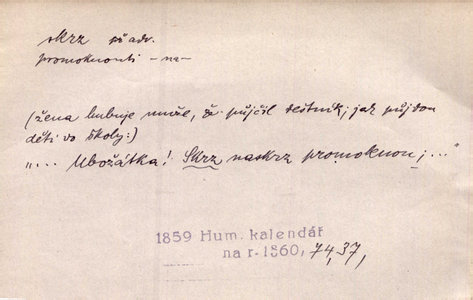 skrz př adv.
promoknouti — na—
(žena hubuje muže, že půjčil deštník; jak půjdou
děti do školy:)
"... Ubožátka! Skrz naskrz promoknou; ..."
1859 Hum. kalendář
na r. 1860, 74, 37,